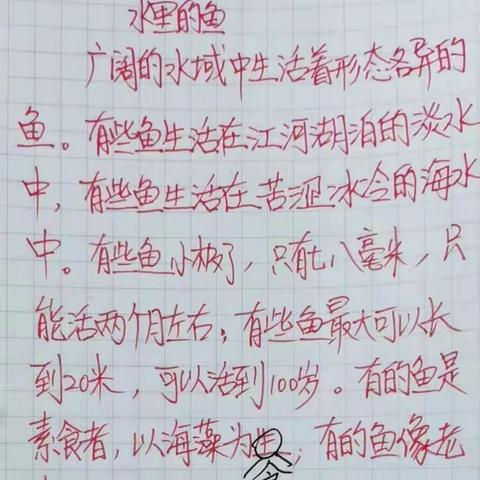 水里的鱼
广阔的水域中生活着形态各异的
鱼。有些鱼生活在江河湖泊的淡水
中，有些鱼生活在苦涩冰冷的海水
中。有些鱼小极了，只有七八毫米，只
能活两个月左右；有些鱼最大可以长
到20米，可以活到100岁。有的鱼是
素食者，以海藻为生，有的鱼像老